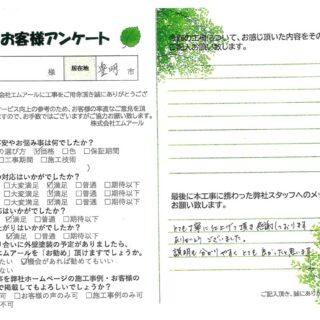 お客様アンケート
様 所在地 豊明 市
式会社エムアールに工事をご用命頂き誠にありがとうござ
サービス向上の参考のため、お客様の率直なご意見を頂
ますので、お手数ではございますがご協力お願い致します。
株式会社エムアール
不安やお悩み事は何でしたか？
の選び方 ☑価格 □色 □保証期間
□工事期間 □施工技術
の対応はいかがでしたか？
□大変満足 ☑満足 □普通 □期待以下
□大変満足 ☑満足 □普通 □期待以下
はいかがでしたか？
足 ☑満足 □普通 □期待以下
がりはいかがでしたか？
足 ☑満足 □普通 □期待以下
り合いに外壁塗装の予定がありましたら、
エムアールを「お勧め」頂けますでしょうか。
たい ☑機会があれば勧めてもいい
ない
を弊社ホームページの施工事例・お客様の
で掲載してもよろしいでしょうか？
□お客様の声のみ可 □施工事例のみ可
不可
の工事について、お感じ頂いた内容をその
ご記入お願い致します。
最後に本工事に携わった弊社スタッフへのメッ
お願い致します。
とても丁寧に仕上げて頂き感謝しております
ありがとうございました。
説明も分かりやすくとても良かったと思います
ご記入頂き、誠にあり